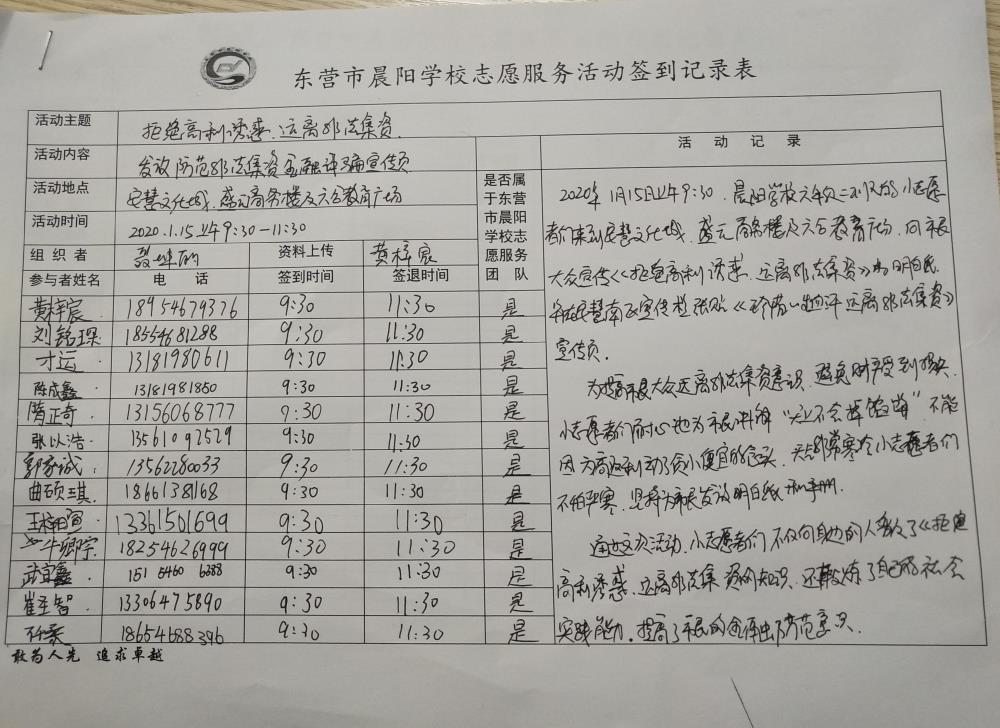 东营市晨阳学校志愿服务活动签到记录表
活动主题 拒绝高利诱惑、远离非法集资
活动内容 发放防范非法集资金融诈骗宣传页
活动地点 安慧文化城、盛元商务楼及六合教育广场
活动时间 2020.1.15上午9:30-11:30
组织者 资料上传 黄梓宸
是否属于东营市晨阳学校志愿服务团队
参与者姓名 电话 签到时间 签退时间
黄梓宸 18954679376 9:30 11:30 是
刘铭琛 18554681288 9:30 11:30 是
才运 13181980611 9:30 11:30 是
陈成鑫 13181981850 9:30 11:30 是
隋正奇 13156068777 9:30 11:30 是
张以浩 13561092529 9:30 11:30 是
郭家诚 13562280033 9:30 11:30 是
曲硕琪 18661381168 9:30 11:30 是
13361501699 9:30 11:30 是
牛卿宗 18254626999 9:30 11:30 是
武宜鑫 151 5460 6388 9:30 11:30 是
崔至智 13306475890 9:30 11:30 是
18654688396 9:30 11:30 是
敢为人先 追求卓越
活动记录
2020年1月15日上午9:30,晨阳学校六年级二班的小志愿
者们来到安慧文化城、盛元商务楼及六合教育广场,向市民
大众宣传《拒绝高利诱惑、远离非法集资》的明白纸
宣传栏张贴远离非法集资》
宣传页。
为提高市民大众远离非法集资意识,避免财产受到损失,
小志愿者们耐心地为市民讲解“天上不会掉馅饼”不能
因为高返利动了贪小便宜的念头,天气非常寒冷小志愿者们
不怕严寒,坚持为市民发放明白纸和手册。
通过这次活动,小志愿者们不仅向身边的人《拒绝
高利诱惑、远离非法集资》的知识,还锻炼了自己的社会
实践能力,提高了市民的防范意识。